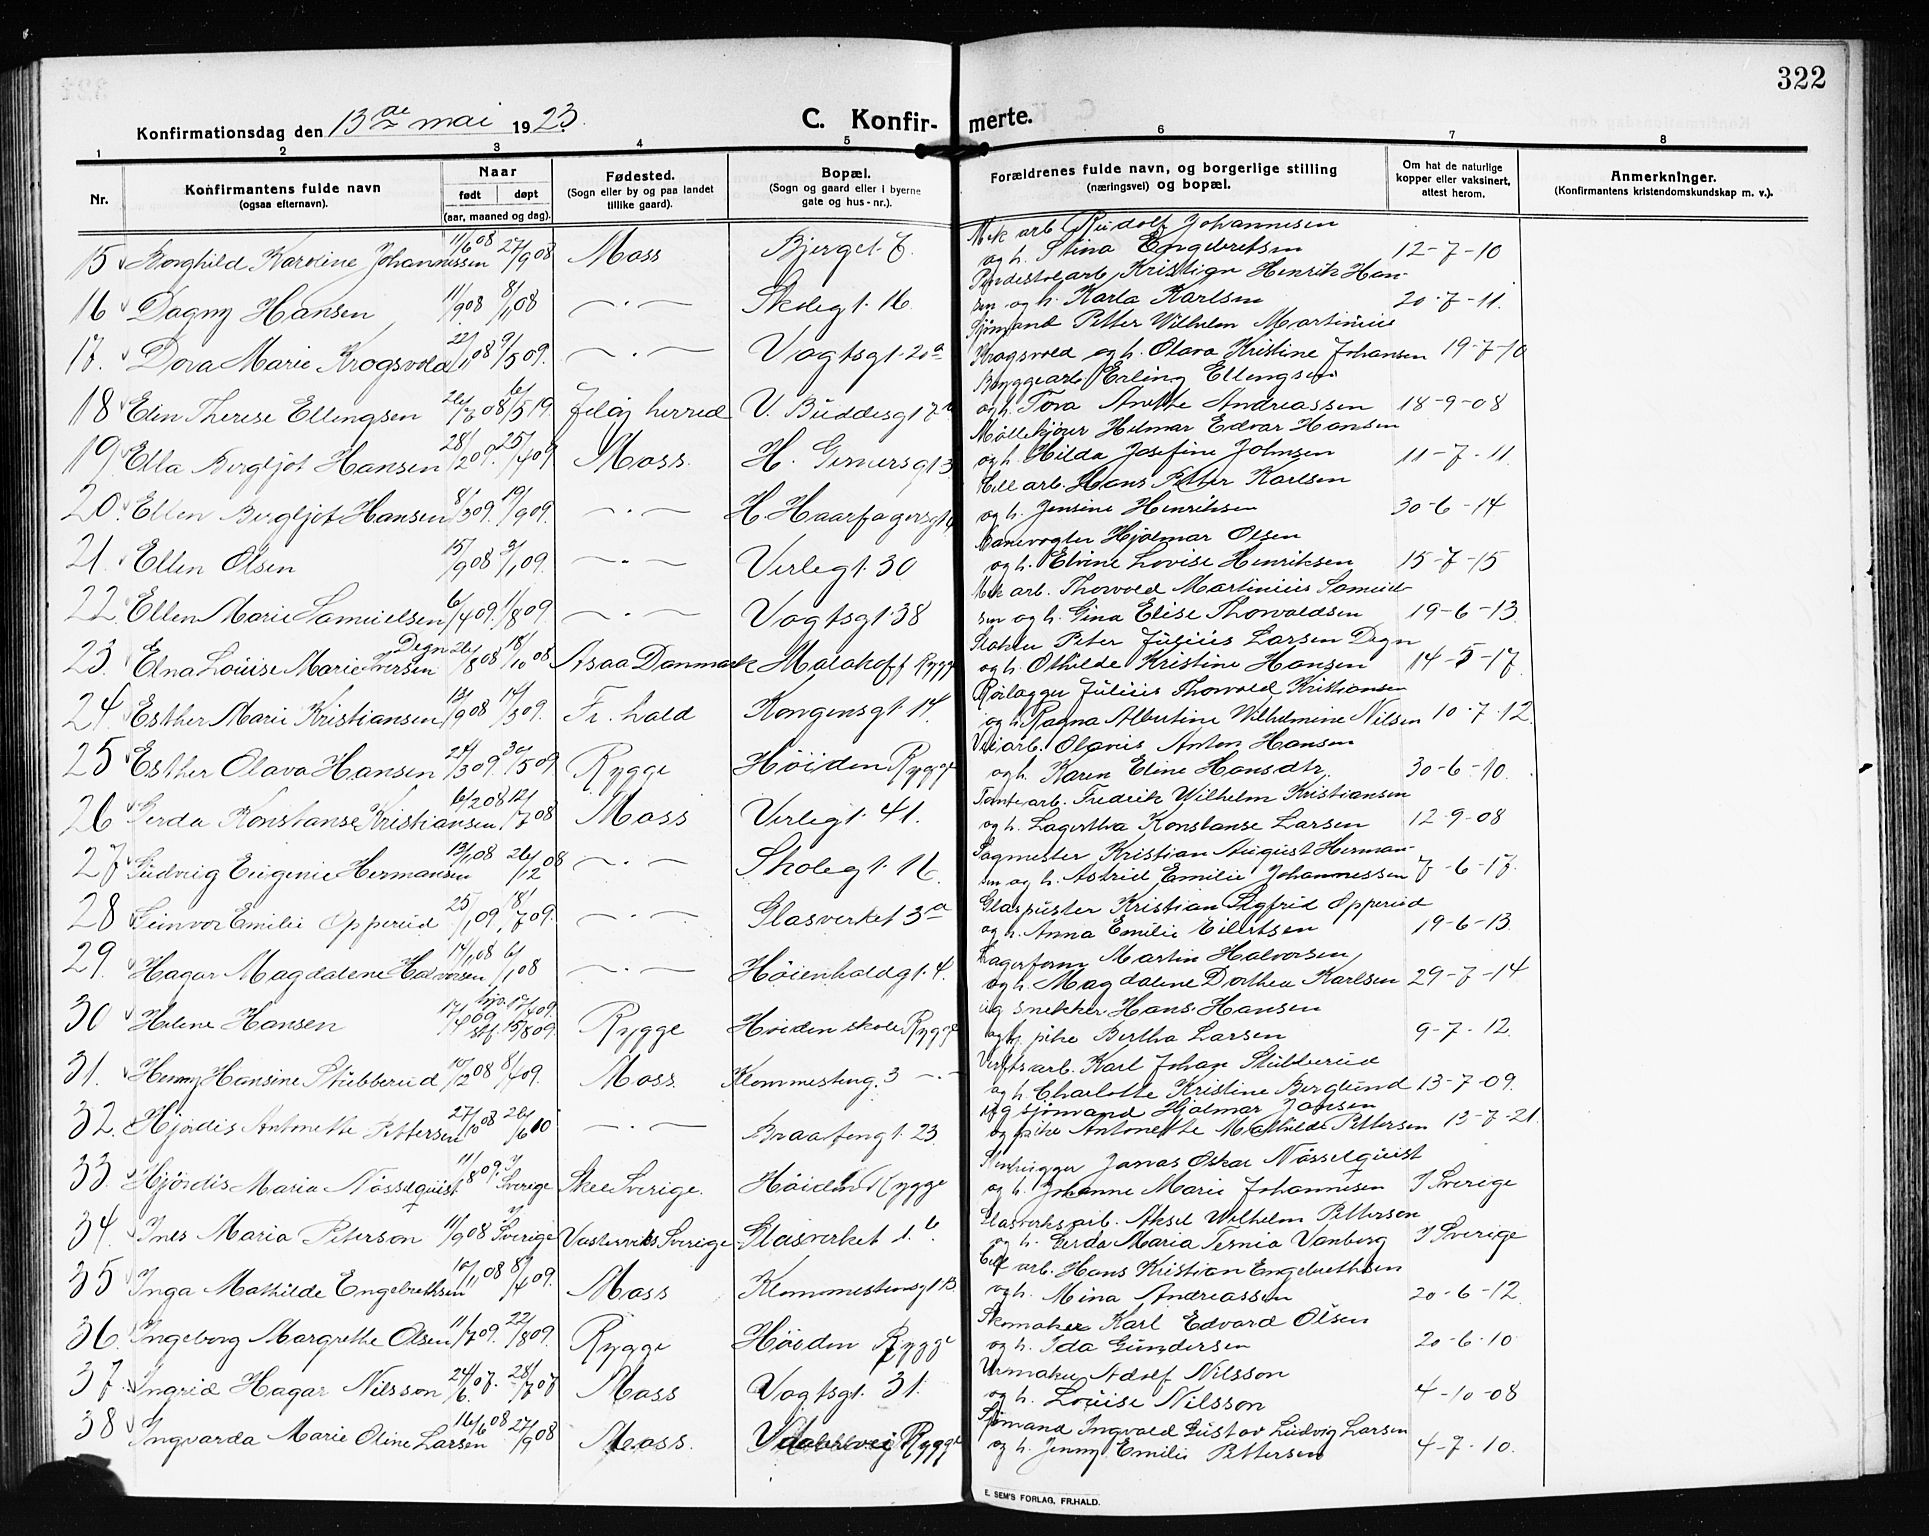 322
Konfirmationsdag den 13de mai 1923.
C. Konfirmerte.
1 2 3 4 5 6 7 8
Nr.
Konfirmantens fulde navn (ogsaa efternavn).
Naar født døpt (aar, maaned og dag).
Fødested. (Sogn eller by og paa landet tillike gaard).
Bopæl. (Sogn og gaard eller i byerne gate og hus-nr.).
Forældrenes fulde navn, og borgerlige stilling (næringsvei) og bopæl.
Om hat de naturlige kopper eller vaksinert, attest herom.
Anmerkninger. (Konfirmantens kristendomskundskap m. v.).
15 Borghild Karoline Johannessen 11/6 08 27/9 08 Moss Bjerget 7. Mek arb Rudolf Johannesen
og h. Stina Engebretsen 12-7-10
16 Dagny Hansen 1/9 08 8/1 08 —·— Skolegt. 16 Kristian Henrik Han-
sen og h. Karla Karlsen 20-7-11.
17. Dora Marie Krogsvold 22/11 08 9/5 09. —·— Vogtsgt. 20a Sjømand Petter Wilhelm Martinius
Krogsvold og h. Olava Kristine Johansen 19-7-10
18 Elin Therese Ellingsen 26/7 08 6/5 19. Jeløy herred V. Buddesgt 7b Bryggearb Erling Ellingsen
og h. Tora Anette Andreassen 18-9-08
19 Ella Bergljot Hansen 28/2 09. 25/4 09 Moss. H. Gernersgt 3 Møllekjører Helmar Edvar Hansen
og h. Hilda Josefine Johnsen 11-7-11.
20. Ellen Bergljot Hansen 8/3 09. 19/9 09. —·— H. Haarfagersgt Cell arb. Hans Petter Karlsen
og h. Jensine Henriksen 30-6-14
21. Ellen Olsen 15/9 08 3/1 09. —·— Verlegt. 30 Banevogter Hjalmar Olsen
og h. Elvine Lovise Henriksen 15-7-15
22 Ellen Marie Samuelsen 6/4 09. 1/8 09. —·— Vogtsgt. 38 Mek arb. Thorvald Martinius Samuel-
sen og h. Gina Elise Thorvaldsen 19-6-13.
23. Elna Louise Marie Degn Iversen 26/8 08 18/10 08 Asaa Danmark Malakoff Rygge Slakter Peter Julius Larsen Degn
og h. Othilde Kristine Hansen 14-5-17.
24. Esther Marie Kristiansen 13/9 08 14/3 09. Fr. hald Kongensgt. 14. Rørlægger Julius Thorvald Kristiansen
og h. Ragna Albertine Wilhelmine Nilsen 10-7-12.
25 Esther Olava Hansen 24/3 09. 30/5 09 Rygge Høiden Rygge Veiarb. Olavus Anton Hansen
og h. Karen Eline Hansdtr. 30-6-10.
26 Gerda Konstanse Kristiansen 6/2 08 12/7 08 Moss Verlegt. 41. Tomtearb. Fredrik Wilhelm Kristiansen
og h. Lagertha Konstanse Larsen 12-9-08
27 Gudveig Eugenie Hermansen 13/1 08 26/12 08 —·— Skolegt. 16. Sagmester Kristian August Herman-
sen og h. Astrid Emilie Johannessen 7-6-17.
28 Gunvor Emilie Opperud 25/1 09. 18/7 09. —·— Glasverket 3a Glaspuster Kristian Sigfrid Opperud
og h. Anna Emilie Eilertsen 19-6-13.
29. Hagar Magdalene Halvorsen 14/1 08 6/1 08 —·— Høienhaldgt. 4. Lagerform Martin Halvorsen,
og h. Magdalene Dorthea Karlsen 29-7-14
30 Helene Hansen 17/4 09 hjd. 17/4 09. stf. 15/8 09. Rygge Høiden skole Rygge ug snekker Hans Hansen
og pike Bertha Larsen 9-7-12.
31. Henny Hansine Stubberud 10/12 08 8/4 09. Moss. Klommesteng. 3 —·— Verftsarb. Karl Johan Stubberud
og h. Charlotte Kristine Berglund 13-7-09.
32. Hjørdis Antonette Pettersen 27/10 08 20/6 10 —·— Braatengt. 23. ug sjømand Hjalmar Jansen
og pike Antonette Mathilde Pettersen 13-7-21.
33. Hjørdis Maria Nösselquist 11/8 09. I Sverige Skee Sverige. Høiden Rygge Stenhugger Jonas Oskar Nösselquist
og h. Johanne Marie Johannesen I Sverige
34. Ines Maria Peterson 11/9 08 I Sverige Vastervik Sverige Glasverket 1.b Glasverksarb. Aksel Wilhelm Petterson
og h. Gerda Maria Ternia Vanberg I Sverige
35 Inga Mathilde Engebrethsen 10/11 08 8/4 09. Moss Klommestensgt 13 Cell arb. Hans Kristian Engebrethsen
og h. Mina Andreassen 20-6-12.
36. Ingeborg Margrethe Olsen 11/7 09. 22/8 09. Rygge Høiden Rygge Skomaker Karl Edvard Olsen
og h. Ida Gundersen 20-6-10
37. Ingrid Hagar Nilsson 24/6 07. 28/7 07 Moss Vogtsgt. 31. Urmaker Adolf Nilsson
og h. Louise Nilsson 4-10-08
38 Ingvarda Marie Oline Larsen 16/6 08 27/9 08 Moss. Rygge Sjømand Ingvald Gustav Ludvig Larsen
og h. Jenny Emilie Pettersen 4-7-10.
E. SEM'S FORLAG, FR.HALD.